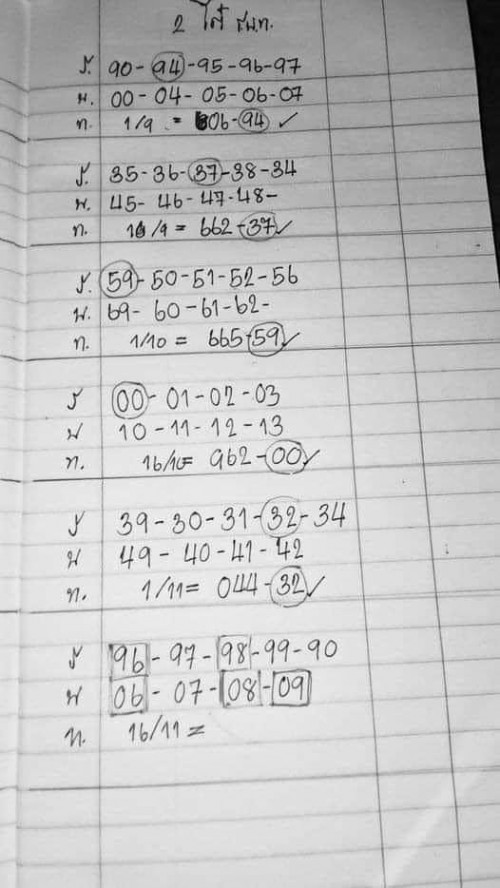 2 ใต้ ธ.ก.ท.
ร. 90-94-95-96-97
น. 00-04-05-06-07
ท. 1/9 = 306-94 ✓
ร. 35-36-37-38-34
น. 45-46-47-48-
ท. 16/9 = 662-37 ✓
ร. 59-50-51-52-56
น. 69-60-61-62-
ท. 1/10 = 665-59 ✓
ร 00-01-02-03
น 10-11-12-13
ท. 16/10= 962-00 ✓
ร 39-30-31-32-34
น 49-40-41-42
ท. 1/11= 044-32 ✓
ร 96-97-98-99-90
น 06-07-08-09
ท. 16/11 =